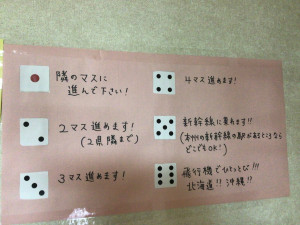 隣のマスに
進んで下さい!
2マス進めます!
(2県隣まで)
3マス進めます!
4マス進めます!
新幹線に乗れます!!
(本州の新幹線の駅があるところなら
どこでもOK!)
飛行機でひとっとび!!!
北海道!! 沖縄!!